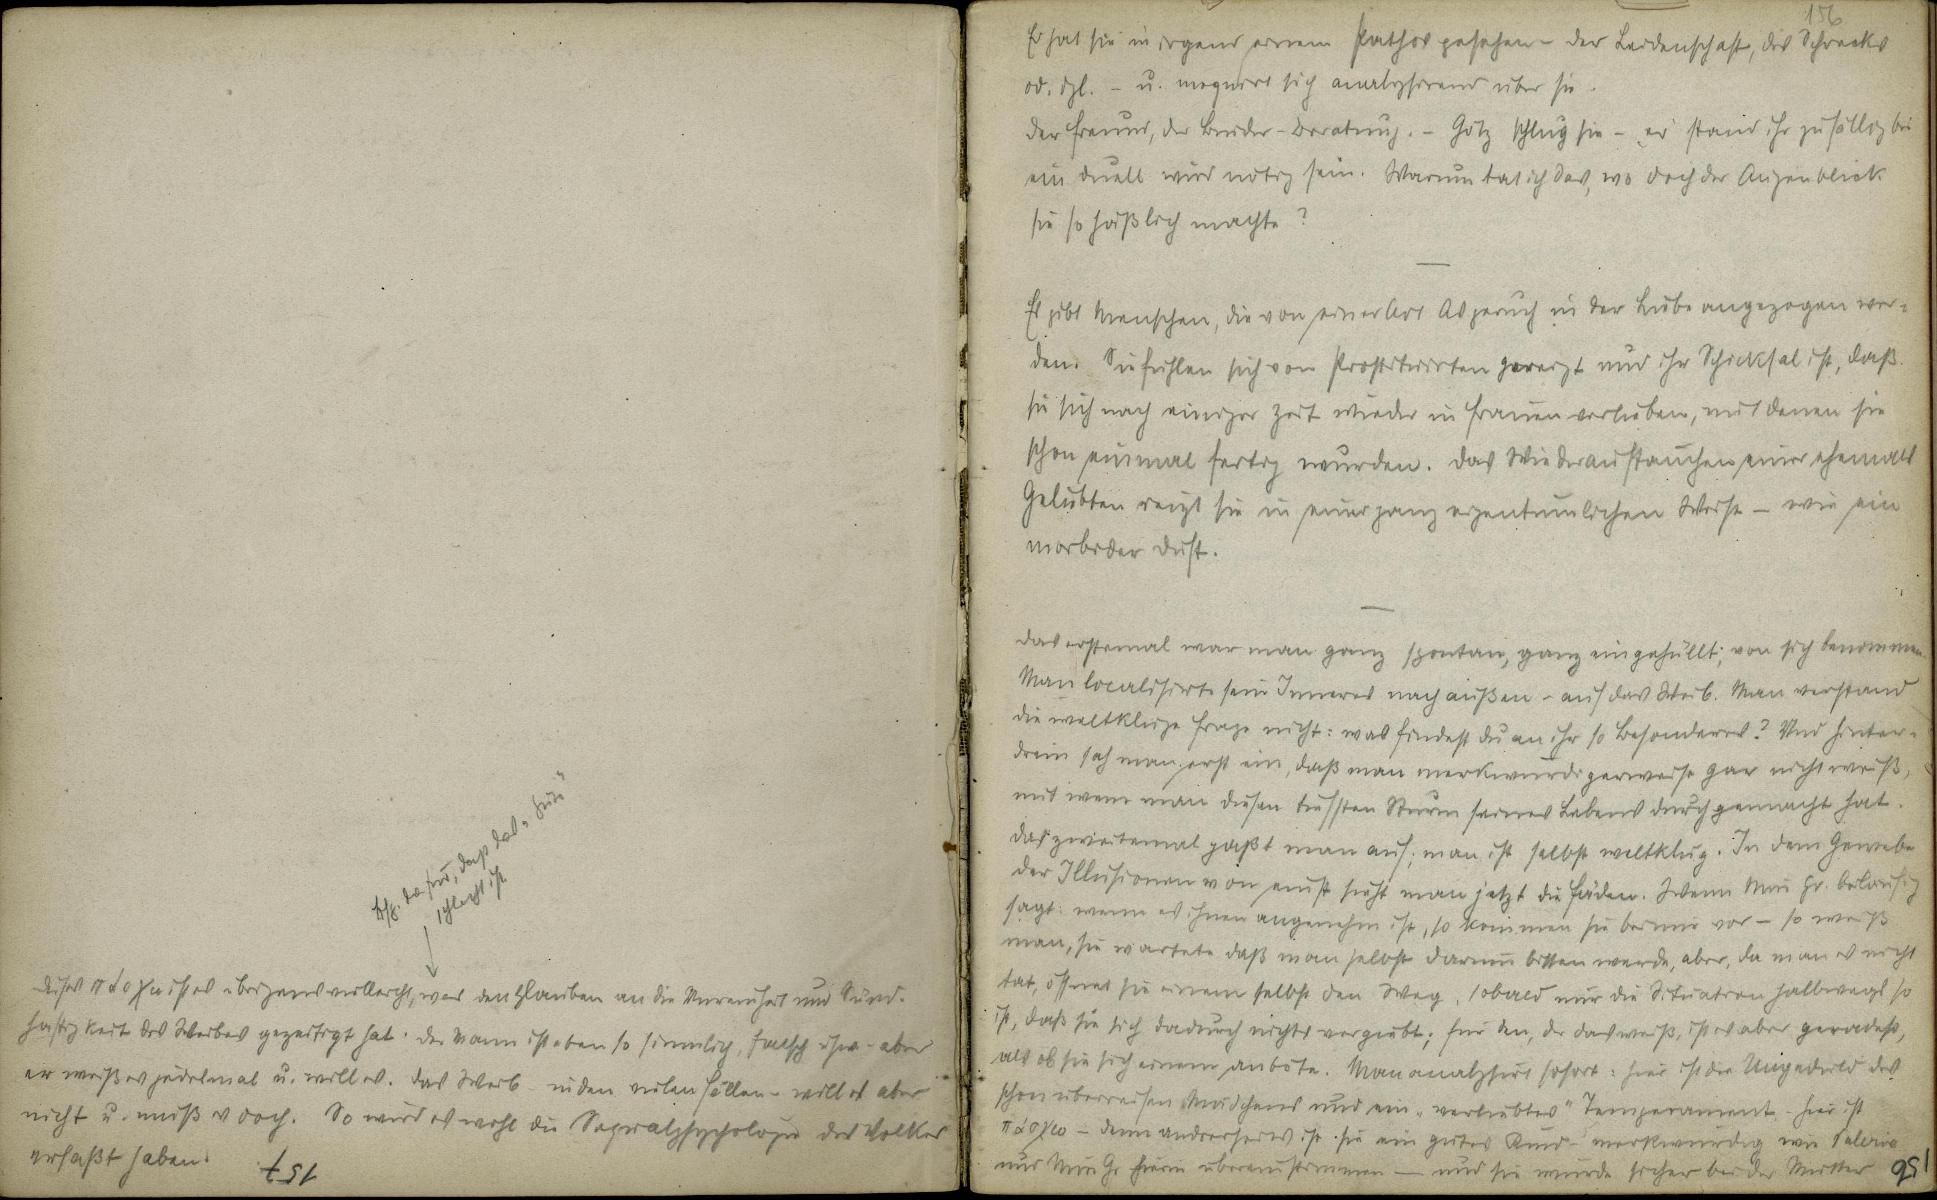 Bsp. dafür, daß das „Huū"
schlecht ist
dieses πάσχω ist es übrigens vielleicht, was den Glauben an die Unreinheit und Sünd-
haftigkeit des Weibes gezeitigt hat. Der Mann ist eben so sinnlich, falsch usw - aber
er weiß es jedesmal u. will es. Das Weib - in den vielen Fällen - will es aber
nicht u. muß es doch. So wird es wohl die Sexualpsychologie der Völker
erfaßt haben.
157
156
Er hat sie in irgend einem Pathos gesehen - der Leidenschaft, des Schrecks
od. dgl. - u. moquiert sich analysierend über sie.
Der Freund, der Bruder - Beratung. - Götz schlug sie - er stand ihr zufällig bei
ein Duell wird nötig sein. Warum tat ich das, wo doch der Augenblick
sie so häßlich machte?
Es gibt Menschen, die von einer Art Asgeruch in der Liebe angezogen wer-
den. Sie fühlen sich von Prostituirten gereizt und ihr Schicksal ist, daß
sie sich nach einiger Zeit wieder in Frauen verlieben, mit denen sie
schon einmal fertig wurden. Das Wiederauftauchen einer ehemals
Geliebten reizt sie in einer ganz eigentümlichen Weise - wie ein
morbider Duft.
Das erstemal war man ganz spontan, ganz eingehüllt; von sich benommen.
Man localisirte sein Inneres nach außen - auf das Weib. Man verstand
die weltkluge Frage nicht: was findest du an ihr so Besonderes? Und hinter-
drein sah man erst ein, daß man merkwürdigerweise gar nicht weiß,
mit wem man diesen tiefsten Sturm seines Lebens durchgemacht hat.
Das zweitemal paßt man auf; man ist selbst weltklug. In dem Gewebe
der Illusionen von einst sieht man jetzt die Fäden. Wenn Mme Gr. beiläufig
sagt: wenn es ihnen angenehm ist, so kommen sie bei mir vor - so weiß
man, sie wartete daß man selbst darum bitten werde, aber, da man es nicht
tat, öffnet sie einem selbst den Weg, sobald nur die Situation halbwegs so
ist, daß sie sich dadurch nichts vergiebt; für den, der das weiß, ist es aber geradeso,
als ob sie sich einem anböte. Man analysirt sofort: hier ist die Ungeduld des
schon überreifen Mädchens und ein „verliebtes" Temperament - hier ist
πάσχω - denn andrerseits ist sie ein gutes Kind - merkwürdig wie Valerie
und Mme Gr hierin übereinstimmen - und sie wurde sicher bei der Mutter
156